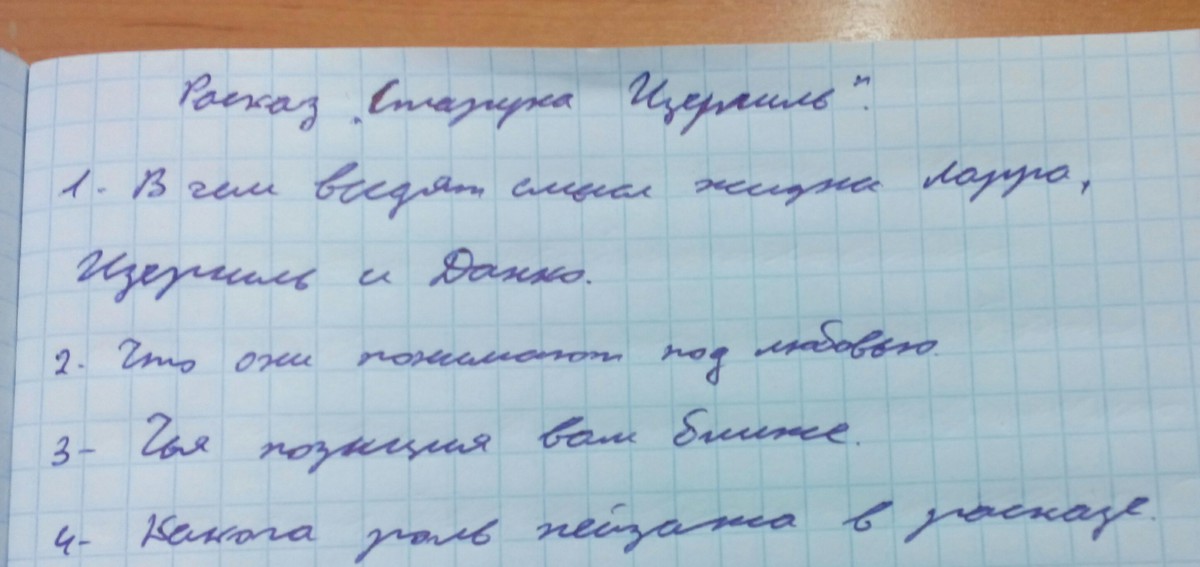 Расказ „Старуха Изергиль".
1. В чем видят смысл жизни Ларра,
Изергиль и Данко.
2. Что они понимают под любовью.
3- Чья позиция вам ближе.
4- Какога роль пейзажа в расказе.